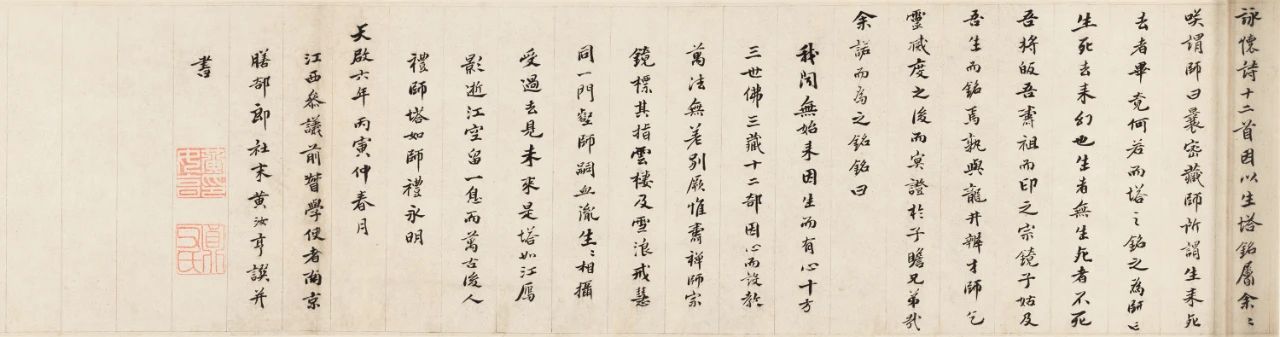 詠懷詩十二首因以生塔銘屬余〻
咲謂師曰曩密藏師所謂生来死
去者畢竟何若而塔之銘之為師曰
生死去来幻也生者無生死者不死
吾將皈吾壽祖而印之宗鏡子姑及
吾生而銘焉孰與龍井辯才師乞
靈滅度之後而冥證於子瞻兄弟哉
余諾而為之銘銘曰
我聞無始来因生而有心十方
三世佛三藏十二部因心而設教
萬法無差別厥惟壽禪師宗
鏡標其指雲棲及雪浪戒慧
同一門壑師嗣血胤生〻相攝
受過去見未來是塔如江鴈
影逝江空留一息而萬古後人
禮師塔如師禮永明
天啟六年丙寅仲春月
江西叅議前督學使者南京
膳部郎社末黃汝亨譔并
書